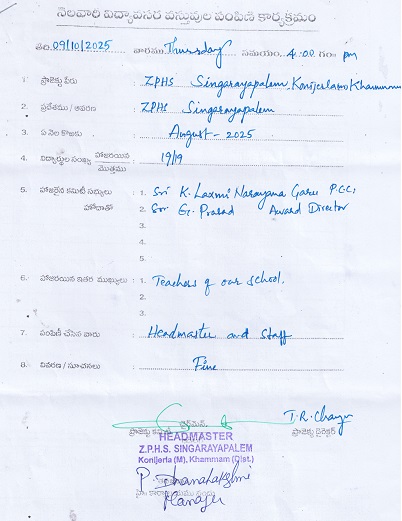 నెలవారి విద్యావసర వస్తువుల పంపిణీ కార్యక్రమం
తేది. 09/10/2025 వారము. Thursday సమయం. 4.00 గం pm
1. ప్రాజెక్టు పేరు ZPHS Singarayapalem, Konijerlamo/Khammam
2. ప్రదేశము / ఆవరణ : ZPHS Singarayapalem
3. ఏ నెల కొఱకు : August - 2025
4. విద్యార్థుల సంఖ్య హాజరయిన / మొత్తము : 19/19
5. హాజరైన కమిటీ సభ్యులు : 1. Sri K. Laxmi Narayana Garu P.C.C,
హోదాతో 2. Sri G. Prasad Award Director
3.
4.
5.
6. హాజరయిన ఇతర ముఖ్యులు : 1. Teachers of our school.
2.
3.
7. పంపిణీ చేసిన వారు : Headmaster and Staff
8. వివరణ / సూచనలు : Fine
T.R.
ప్రాజెక్టు ఛైర్మెన్, ప్రాజెక్టు డైరెక్టర్
HEADMASTER
Z.P.H.S. SINGARAYAPALEM
Konijerla (M), Khammam (Dist.)
Manager